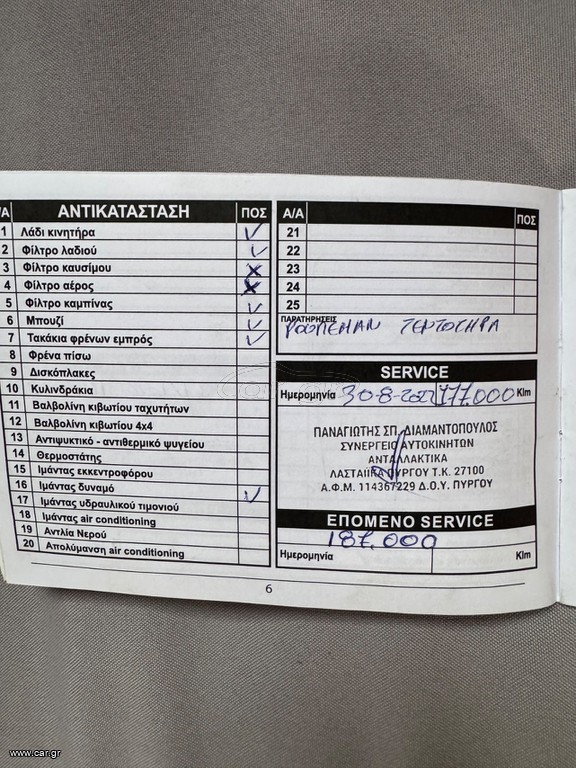 Α/Α ΑΝΤΙΚΑΤΑΣΤΑΣΗ ΠΟΣ
1 Λάδι κινητήρα ✓
2 Φίλτρο λαδιού ✓
3 Φίλτρο καυσίμου X
4 Φίλτρο αέρος X
5 Φίλτρο καμπίνας ✓
6 Μπουζί ✓
7 Τακάκια φρένων εμπρός ✓
8 Φρένα πίσω
9 Δισκόπλακες
10 Κυλινδράκια
11 Βαλβολίνη κιβωτίου ταχυτήτων
12 Βαλβολίνη κιβωτίου 4x4
13 Αντιψυκτικό - αντιθερμικό ψυγείου
14 Θερμοστάτης
15 Ιμάντας εκκεντροφόρου
16 Ιμάντας δυναμό ✓
17 Ιμάντας υδραυλικού τιμονιού
18 Ιμάντας air conditioning
19 Αντλία Νερού
20 Απολύμανση air conditioning
Α/Α ΠΟΣ
21
22
23
24
25
ΠΑΡΑΤΗΡΗΣΕΙΣ
ΡΟΥΛΕΜΑΝ ΤΕΝΤΟΤΗΡΑ
SERVICE
Ημερομηνία 30-8-2022 177.000 Klm
ΠΑΝΑΓΙΩΤΗΣ ΣΠ. ΔΙΑΜΑΝΤΟΠΟΥΛΟΣ
ΣΥΝΕΡΓΕΙΟ ΑΥΤΟΚΙΝΗΤΩΝ
ΑΝΤΑΛΛΑΚΤΙΚΑ
ΛΑΣΤΑΙΙΚΑ ΠΥΡΓΟΥ Τ.Κ. 27100
Α.Φ.Μ. 114367229 Δ.Ο.Υ. ΠΥΡΓΟΥ
ΕΠΟΜΕΝΟ SERVICE
187.000
Ημερομηνία Klm
6
www.car.gr